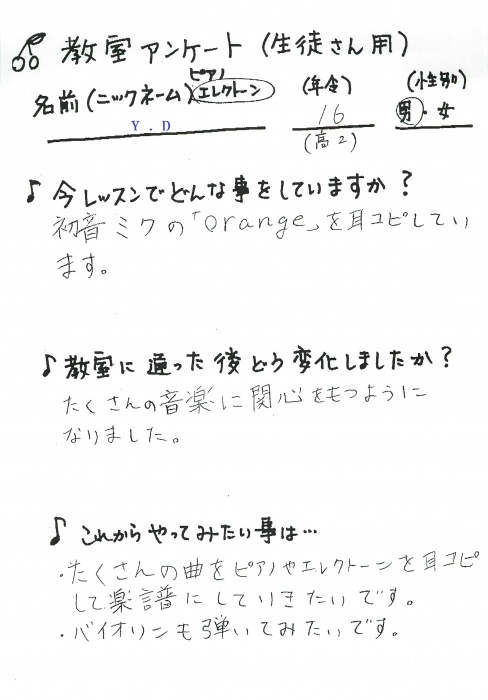 教室アンケート(生徒さん用)
ピアノ
名前(ニックネーム) エレクトーン (年令) (性別)
Y.D 16 男・女
(高2)
♪ 今レッスンでどんな事をしていますか?
初音ミクの「orange」を耳コピしてい
ます。
♪ 教室に通った後どう変化しましたか?
たくさんの音楽に関心をもつように
なりました。
♪ これからやってみたい事は…
・たくさんの曲をピアノやエレクトーンを耳コピ
して楽譜にしていきたいです。
・バイオリンも弾いてみたいです。